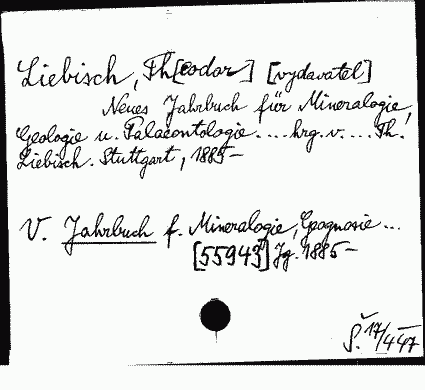 Liebisch, Th[eodor] [vydavatel]
Neues Jahrbuch für Mineralogie,
Geologie u. Palaeontologie .... hrg. v. .... Th.
Liebisch. Stuttgart, 1885-
V. Jahrbuch f. Mineralogie, Geognosie ...
[55943] Jg. 1885-
Š. 17/4 47